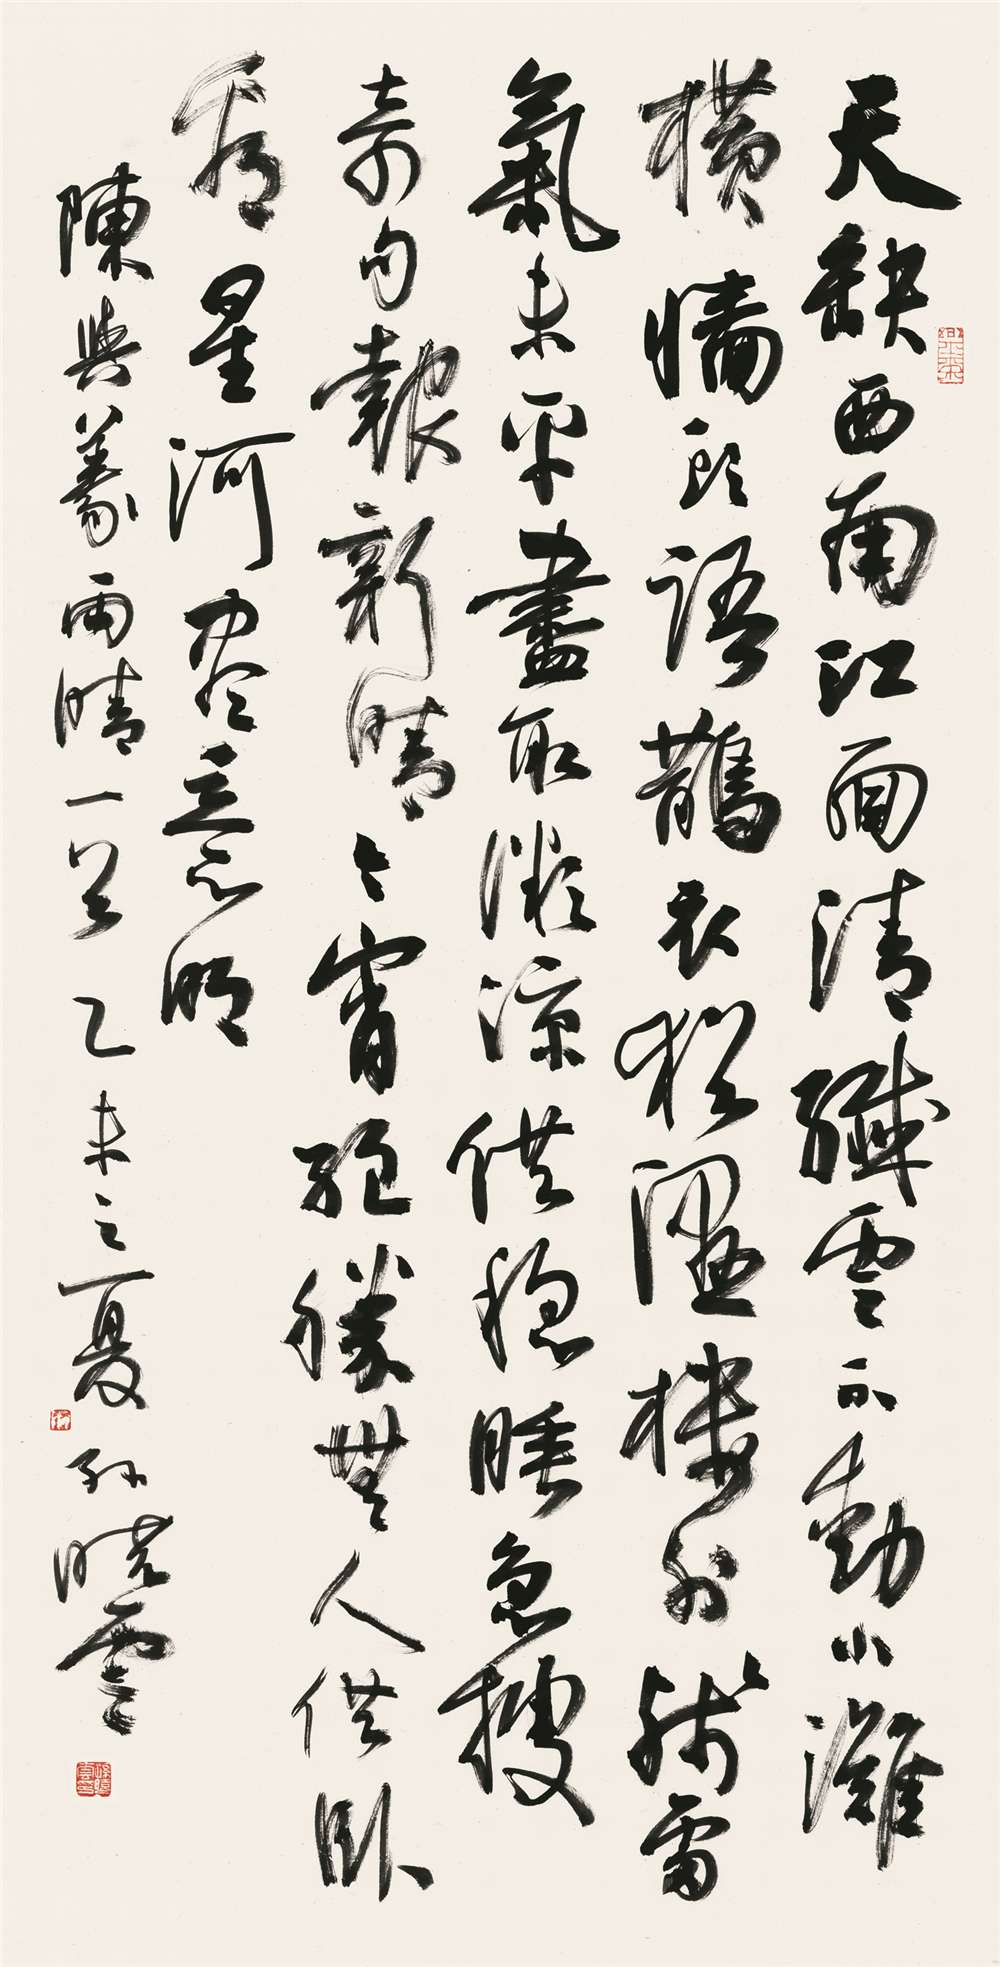 天缺西南江面清纖雲不動小灘
橫牆頭語鵲衣猶溼樓外殘雷
氣未平盡取微涼供穩睡急搜
奇句報新晴今宵絕勝無人供臥
看星河尽意明
陳與義雨晴一首 乙未之夏 孫曉雲